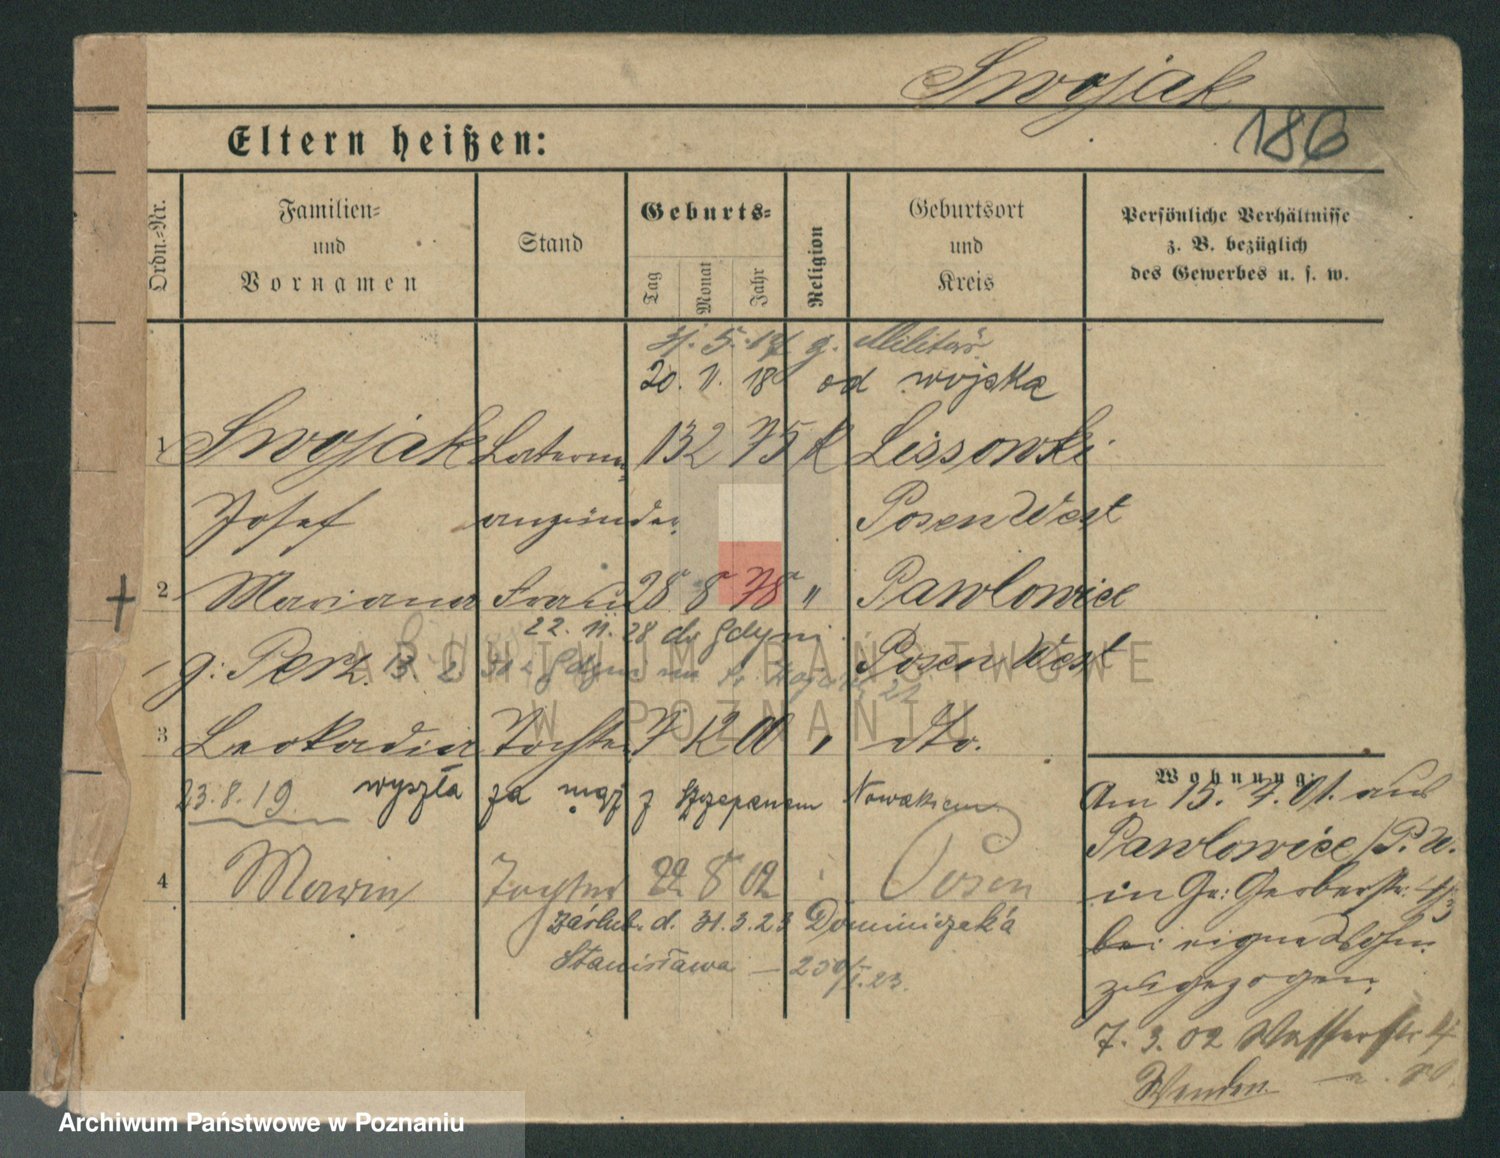 Swojak
186
Eltern heißen:
Ordn.-Nr.
Familien-
und
Vornamen
Stand
Geburts-
Tag
Monat
Jahr
Religion
Geburtsort
und
Kreis
Persönliche Verhältnisse
z. B. bezüglich
des Gewerbes u. s. w.
z. Militär
20. 11. 18 od wojska
1 Swojak Laternen 13 2 75 K Lissowki
Josef anzünder Posen West
2 Mariana Frau 28 8 78 " Pawlowice
22. 11. 28 do Gdyni
g: Perz. Posen West
3 Leokadia Tochter 7 12 00 " dto.
23. 8. 19 wyszła za mąż z Szczepanem Nowakiem
4 Maria Tochter 22 8 02 Posen
Zaślub. d. 31. 3. 23 Dominiczaka
Stanisława
Wohnung:
Am 15. 7. 01. aus
Pawlowice / P. W.
in Gr: Gerberstr.
bei eigne Wohn.
zugezogen.
7. 3. 02 Wasserstr.
Wenden
ARCHIWUM PAŃSTWOWE
W POZNANIU
Archiwum Państwowe w Poznaniu